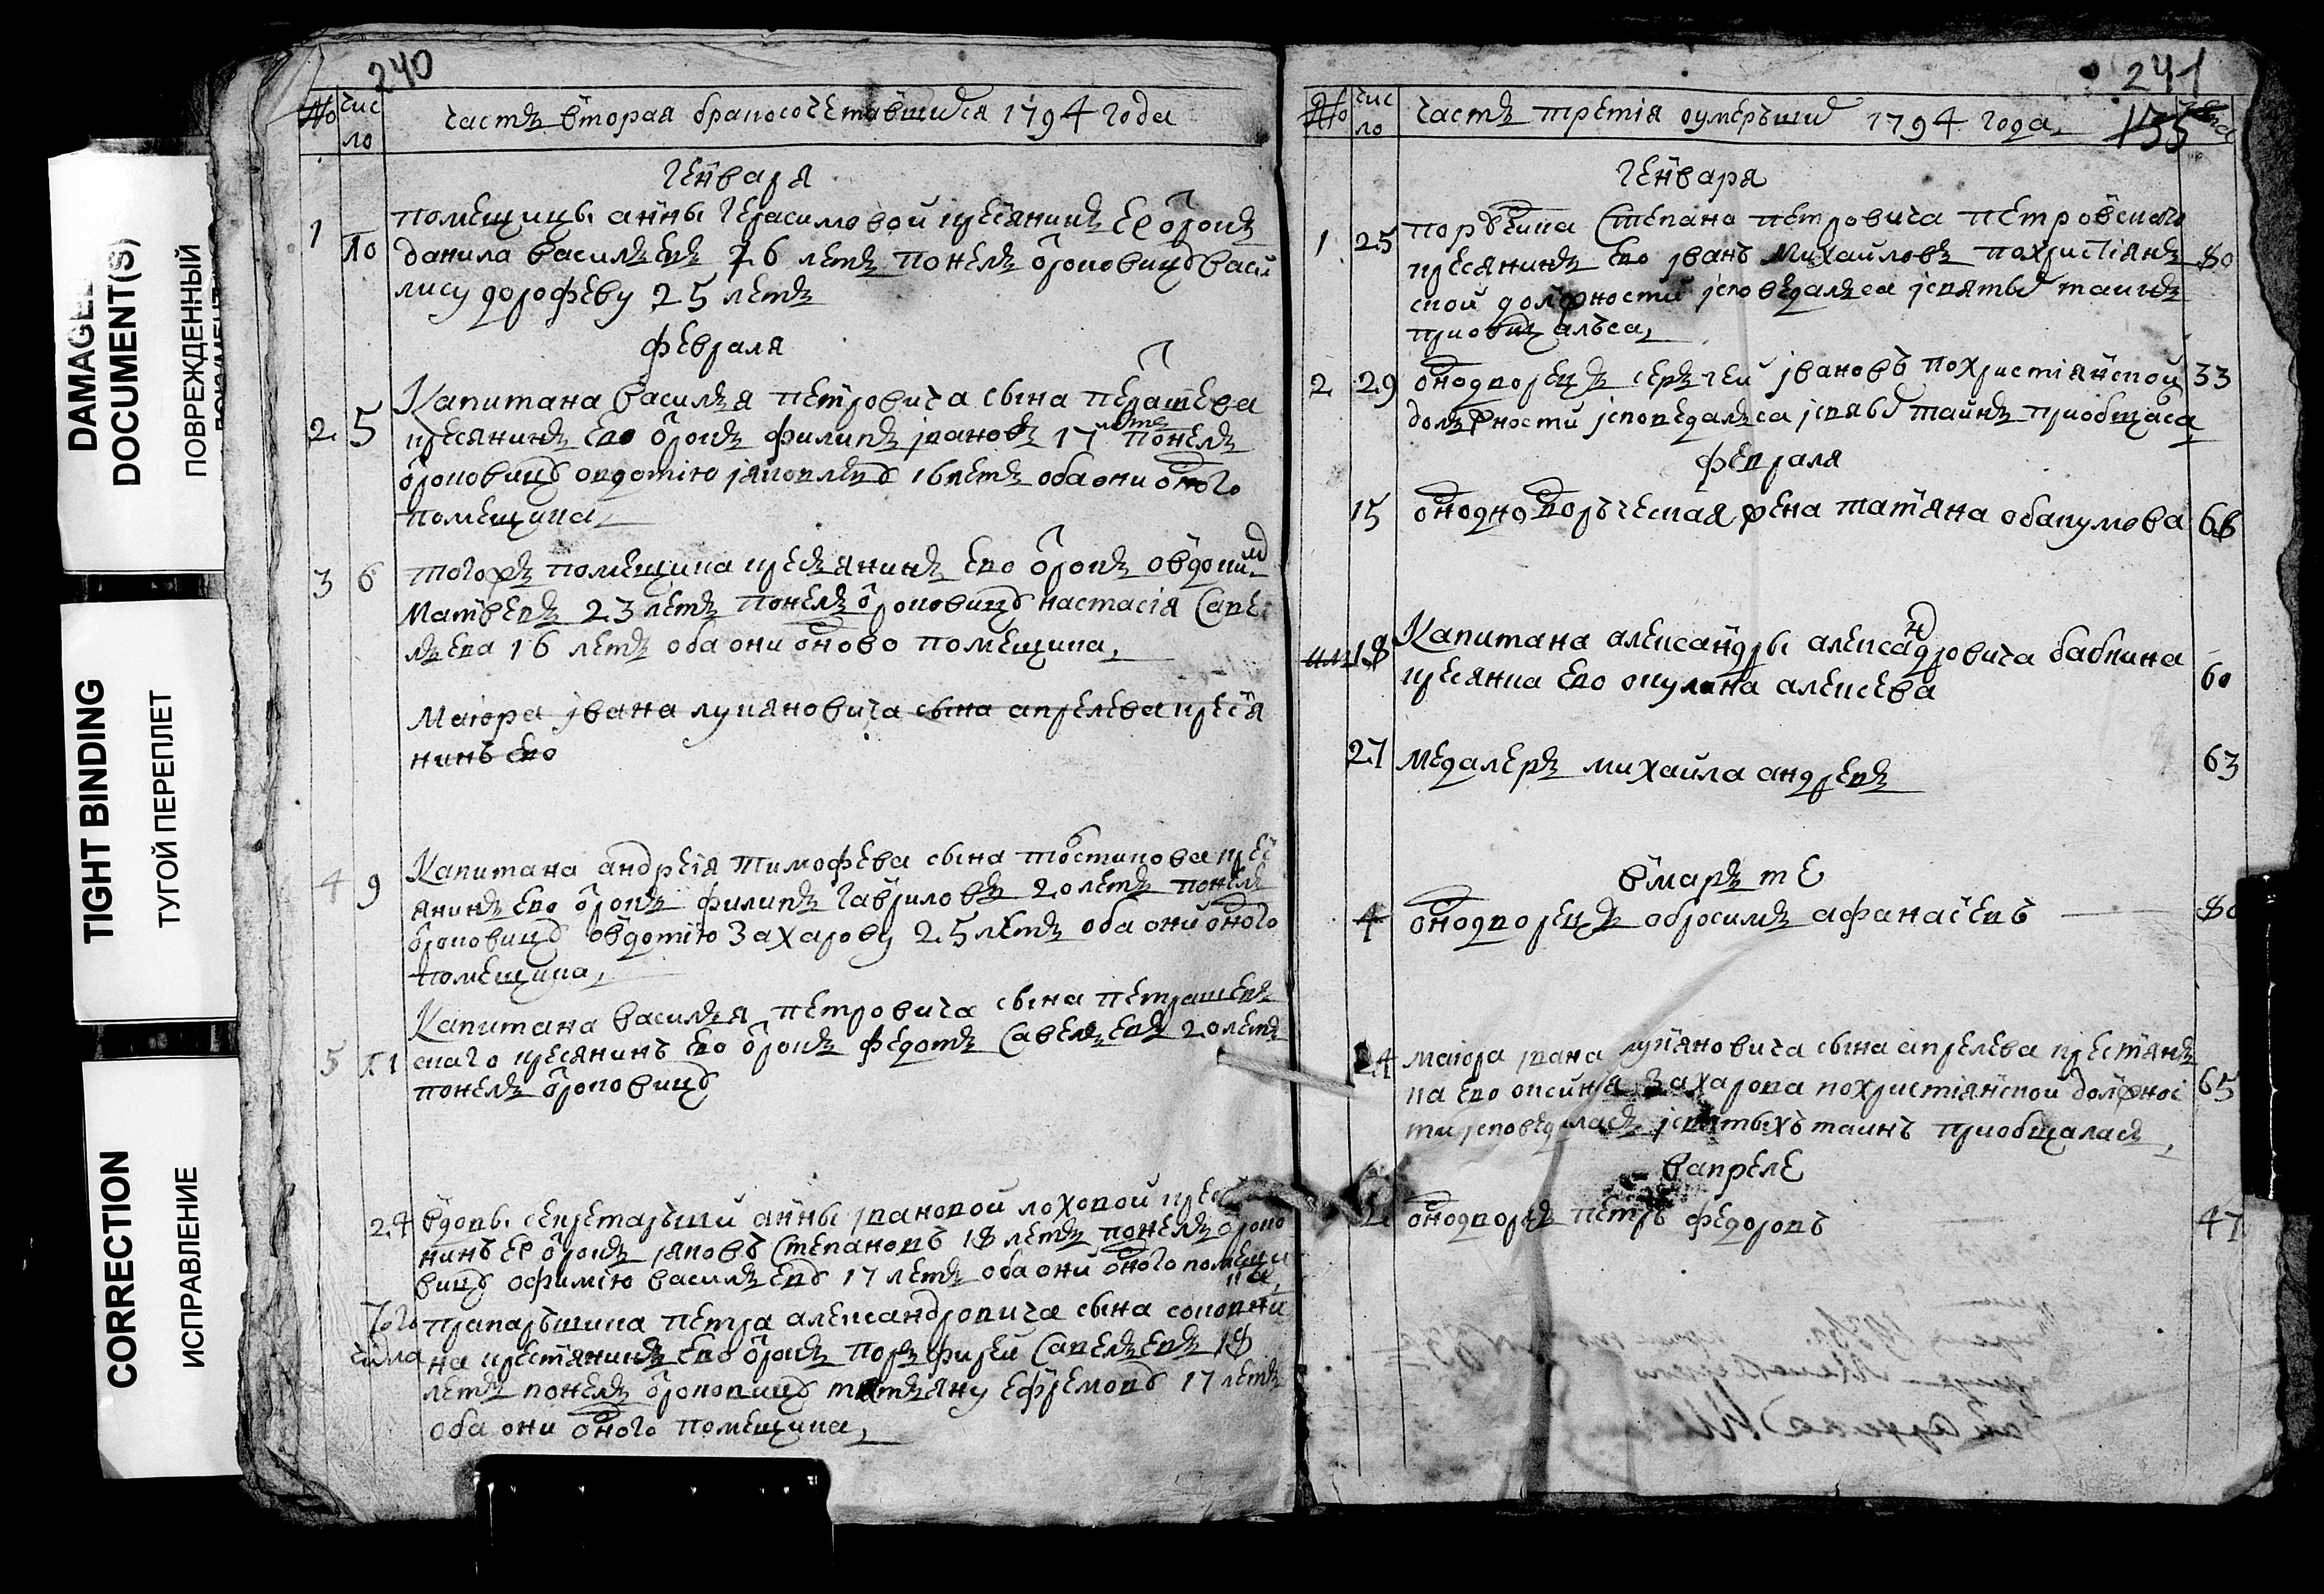 DAMAGED
DOCUMENT(S)
ПОВРЕЖДЕННЫЙ
TIGHT BINDING
ТУГОЙ ПЕРЕПЛЕТ
CORRECTION
ИСПРАВЛЕНИЕ
240
№ чис
ло
часть вторая бракосочетавшихся 1794 года
генваря
1 10 помещицы анны герасимовой кресянинъ ее отрокъ
данила василевъ 26 летъ понелъ отроковицу васи
лису дорофеву 25 летъ
февраля
2 5 Капитана василья петровича сына
кресянинъ ево отрокъ филипъ ивановъ 17 летъ понелъ
отроковицу овдотию яковлеву 16 летъ оба они одного
помещика
3 6 тогожъ помещика кресьянинъ ево отрокъ
матвевъ 23 летъ понелъ отроковицу настасія савель
ева 16 летъ оба они одново помещика
Маіора ивана лукяновича сына апрелева кресья
нинъ ево
4 9 Капитана андреія тимофева сына кресь
янинъ ево отрокъ филипъ гавриловъ 20 летъ понелъ
отроковицу овдотию захарову 25 летъ оба они одного
помещика
5 11 Капитана василья петровича сына петрашев
скаго кресянинъ ево отрокъ федотъ савельевъ 20 летъ
понелъ отроковицу
24 вдовы секретарьши анны ивановой лоховой кресья
нинъ ее отрокъ яковъ степановъ 18 летъ понелъ отроко
вицу офимию василеву 17 летъ оба они одного помещи
ка
того прапарьшика петра александровича сына
числа на крестянинъ ево отрокъ порьфирей савельевъ 18
летъ понелъ отроковицу татьяну ефремову 17 летъ
оба они одного помещика
241
№ чис
ло
часть третія оумерьших 1794 года 155 лета
генваря
1 25 порутчика степана петровича петровскаго
кресянинъ ево иванъ михайловъ похристіянъ 80
ской должности исповедалься исвятых таинъ
приобщалься
2 29 однодворецъ серьгей ивановъ похристіянской 33
должности исповедалься исвятых таинъ приобщался
февраля
15 однодворъческая жена татяна обакумова 66
18 Капитана александры александровича бабкина
кресянка ево окулина алексева 60
27 медалеръ михайла андревъ 63
вмарьте
4 однодворецъ обросимъ афанасевъ 80
24 маіора ивана лукяновича сына апрелева крестянъ
ка ево оксинья захарова похристіянской должнос 65
ти исповедилась исвятыхъ таинъ приобщалась
вапреле
2 однодворецъ петръ федоровъ 47